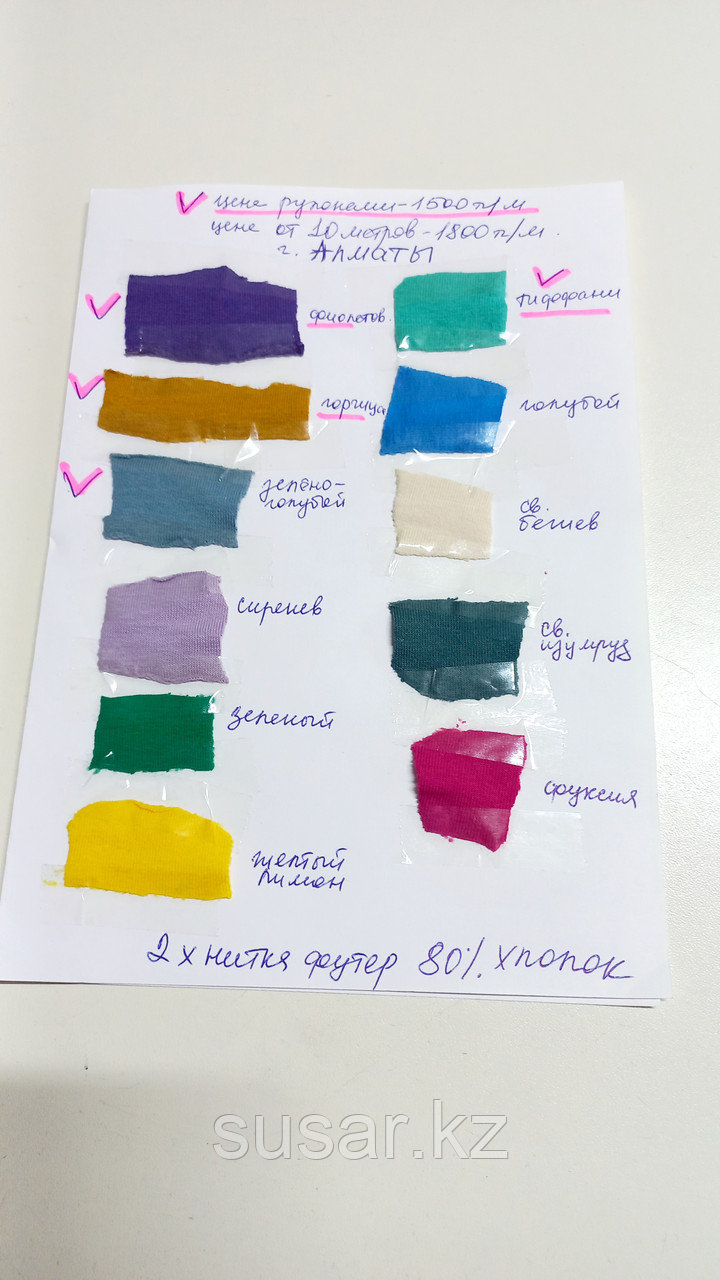 цена рулонами-1500тг/м
цена от 10 метров-1800тг/м.
г. Алматы
фиолетов.
тиффани
горчица
голубой
зелено-
голубой
св.
бежев
сиренев
св.
изумруд
зеленый
фуксия
желтый
лимон
2х нитка футер 80% хлопок
susar.kz